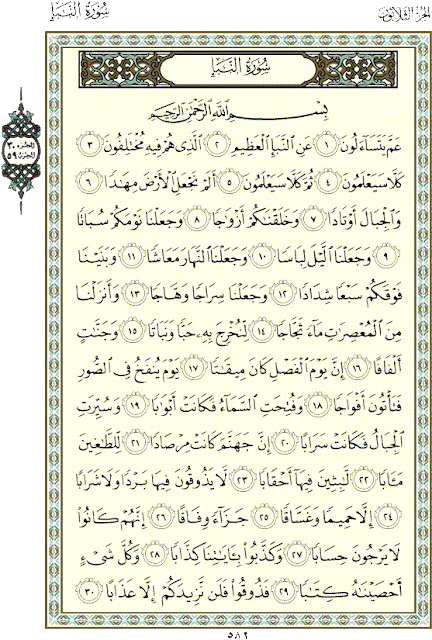 الجزء الثلاثون
سورة النبإ
سُورَةُ النَّبَإِ
بِسْمِ اللَّهِ الرَّحْمَٰنِ الرَّحِيمِ
عَمَّ يَتَسَاءَلُونَ ١ عَنِ النَّبَإِ الْعَظِيمِ ٢ الَّذِي هُمْ فِيهِ مُخْتَلِفُونَ ٣
كَلَّا سَيَعْلَمُونَ ٤ ثُمَّ كَلَّا سَيَعْلَمُونَ ٥ أَلَمْ نَجْعَلِ الْأَرْضَ مِهَٰدًا ٦
وَالْجِبَالَ أَوْتَادًا ٧ وَخَلَقْنَٰكُمْ أَزْوَٰجًا ٨ وَجَعَلْنَا نَوْمَكُمْ سُبَاتًا
٩ وَجَعَلْنَا الَّيْلَ لِبَاسًا ١٠ وَجَعَلْنَا النَّهَارَ مَعَاشًا ١١ وَبَنَيْنَا
فَوْقَكُمْ سَبْعًا شِدَادًا ١٢ وَجَعَلْنَا سِرَاجًا وَهَّاجًا ١٣ وَأَنزَلْنَا
مِنَ الْمُعْصِرَٰتِ مَآءً ثَجَّاجًا ١٤ لِّنُخْرِجَ بِهِۦ حَبًّا وَنَبَاتًا ١٥ وَجَنَّٰتٍ
أَلْفَافًا ١٦ إِنَّ يَوْمَ الْفَصْلِ كَانَ مِيقَٰتًا ١٧ يَوْمَ يُنفَخُ فِي الصُّورِ
فَتَأْتُونَ أَفْوَاجًا ١٨ وَفُتِحَتِ السَّمَآءُ فَكَانَتْ أَبْوَٰبًا ١٩ وَسُيِّرَتِ
الْجِبَالُ فَكَانَتْ سَرَابًا ٢٠ إِنَّ جَهَنَّمَ كَانَتْ مِرْصَادًا ٢١ لِّلطَّٰغِينَ
مَـَٔابًا ٢٢ لَّٰبِثِينَ فِيهَآ أَحْقَابًا ٢٣ لَّا يَذُوقُونَ فِيهَا بَرْدًا وَلَا شَرَابًا
٢٤ إِلَّا حَمِيمًا وَغَسَّاقًا ٢٥ جَزَآءً وِفَاقًا ٢٦ إِنَّهُمْ كَانُوا۟
لَا يَرْجُونَ حِسَابًا ٢٧ وَكَذَّبُوا۟ بِـَٔايَٰتِنَا كِذَّابًا ٢٨ وَكُلَّ شَيْءٍ
أَحْصَيْنَٰهُ كِتَٰبًا ٢٩ فَذُوقُوا۟ فَلَن نَّزِيدَكُمْ إِلَّا عَذَابًا ٣٠
٥٨٢